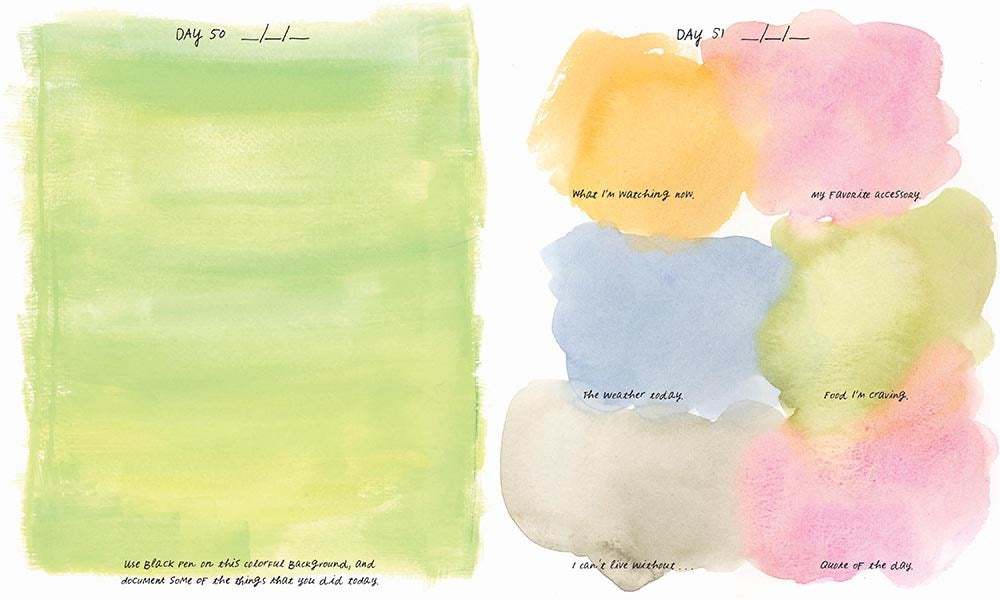 DAY 50 __/__/__
Use Black pen on this colorful background, and
document some of the things that you did today.
DAY 51 __/__/__
What I'm watching now.
My favorite accessory.
The weather today.
Food I'm craving.
I can't live without...
Quote of the day.